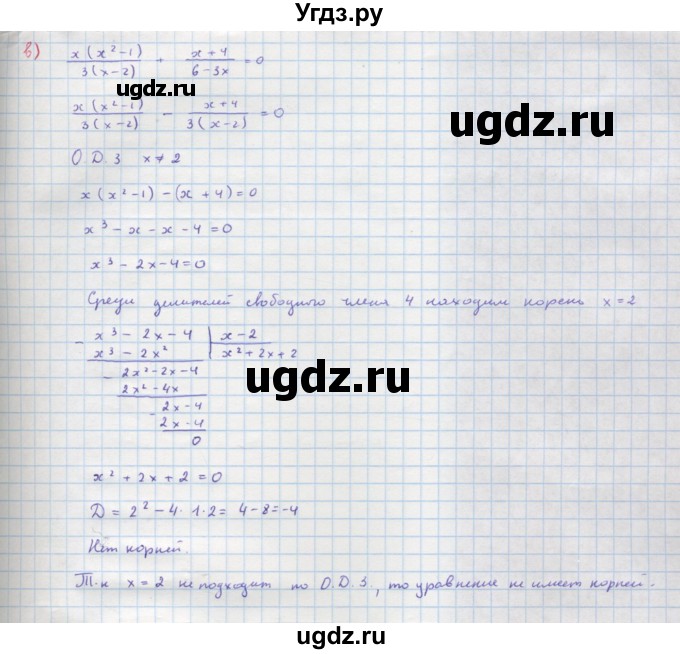 Угдз.ру
в) x(x²-1)/3(x-2) + x+4/6-3x = 0
x(x²-1)/3(x-2) - x+4/3(x-2) = 0
ugdz.ru
ugdz.ru
О.Д.З x≠2
x(x²-1)-(x+4)=0
x³-x-x-4=0
x³-2x-4=0
Среди делителей свободного члена 4 находим корень x=2
- x³-2x-4 | x-2
x³-2x² | x²+2x+2
- 2x²-2x-4
2x²-4x
- 2x-4
2x-4
0
ugdz.ru
ugdz.ru
x²+2x+2=0
D=2²-4·1·2=4-8=-4
Нет корней.
Т.к x=2 не подходит по О.Д.З, то уравнение не имеет корней.
ugdz.ru